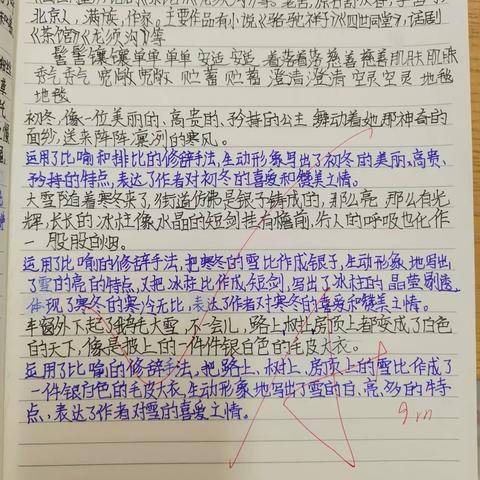 北京人，满族，作家。主要作品有小说《骆驼祥子》《四世同堂》，话剧
《茶馆》《龙须沟》等
髻髻镶镶单单单单安适安适着落着落慈善慈善肌肤肌肤
秀气秀气宽敞宽敞贮蓄贮蓄澄清澄清空灵空灵地毯
地毯
初冬，像一位美丽的、高贵的、矜持的公主舞动着她那神奇的
面纱，送来阵阵凛冽的寒风。
运用了比喻和排比的修辞手法，生动形象写出了初冬的美丽、高贵、
矜持的特点，表达了作者对初冬的喜爱和赞美之情。
大雪随着寒冬来了，街道仿佛是银子铸成的，那么亮，那么有光
辉，长长的冰柱像水晶的短剑挂有檐前，行人的呼吸也化作
一股股白烟。
运用了比喻的修辞手法，把寒冬的雪比作成银子，生动形象地写出
了雪的亮的特点，又把冰柱比作成短剑，写出了冰柱的晶莹剔透，
体现了寒冬的寒冷无比，表达了作者对寒冬的喜爱和赞美之情。
窗外下起了鹅毛大雪，不一会儿，路上树上房顶上都变成了白色
的天下，像是披上的一件件银白色的毛皮大衣。
运用了比喻的修辞手法，把路上、树上、房顶上的雪比作成了
一件银白色的毛皮大衣，生动形象地写出了雪的白、亮、多的特
点，表达了作者对雪的喜爱之情。